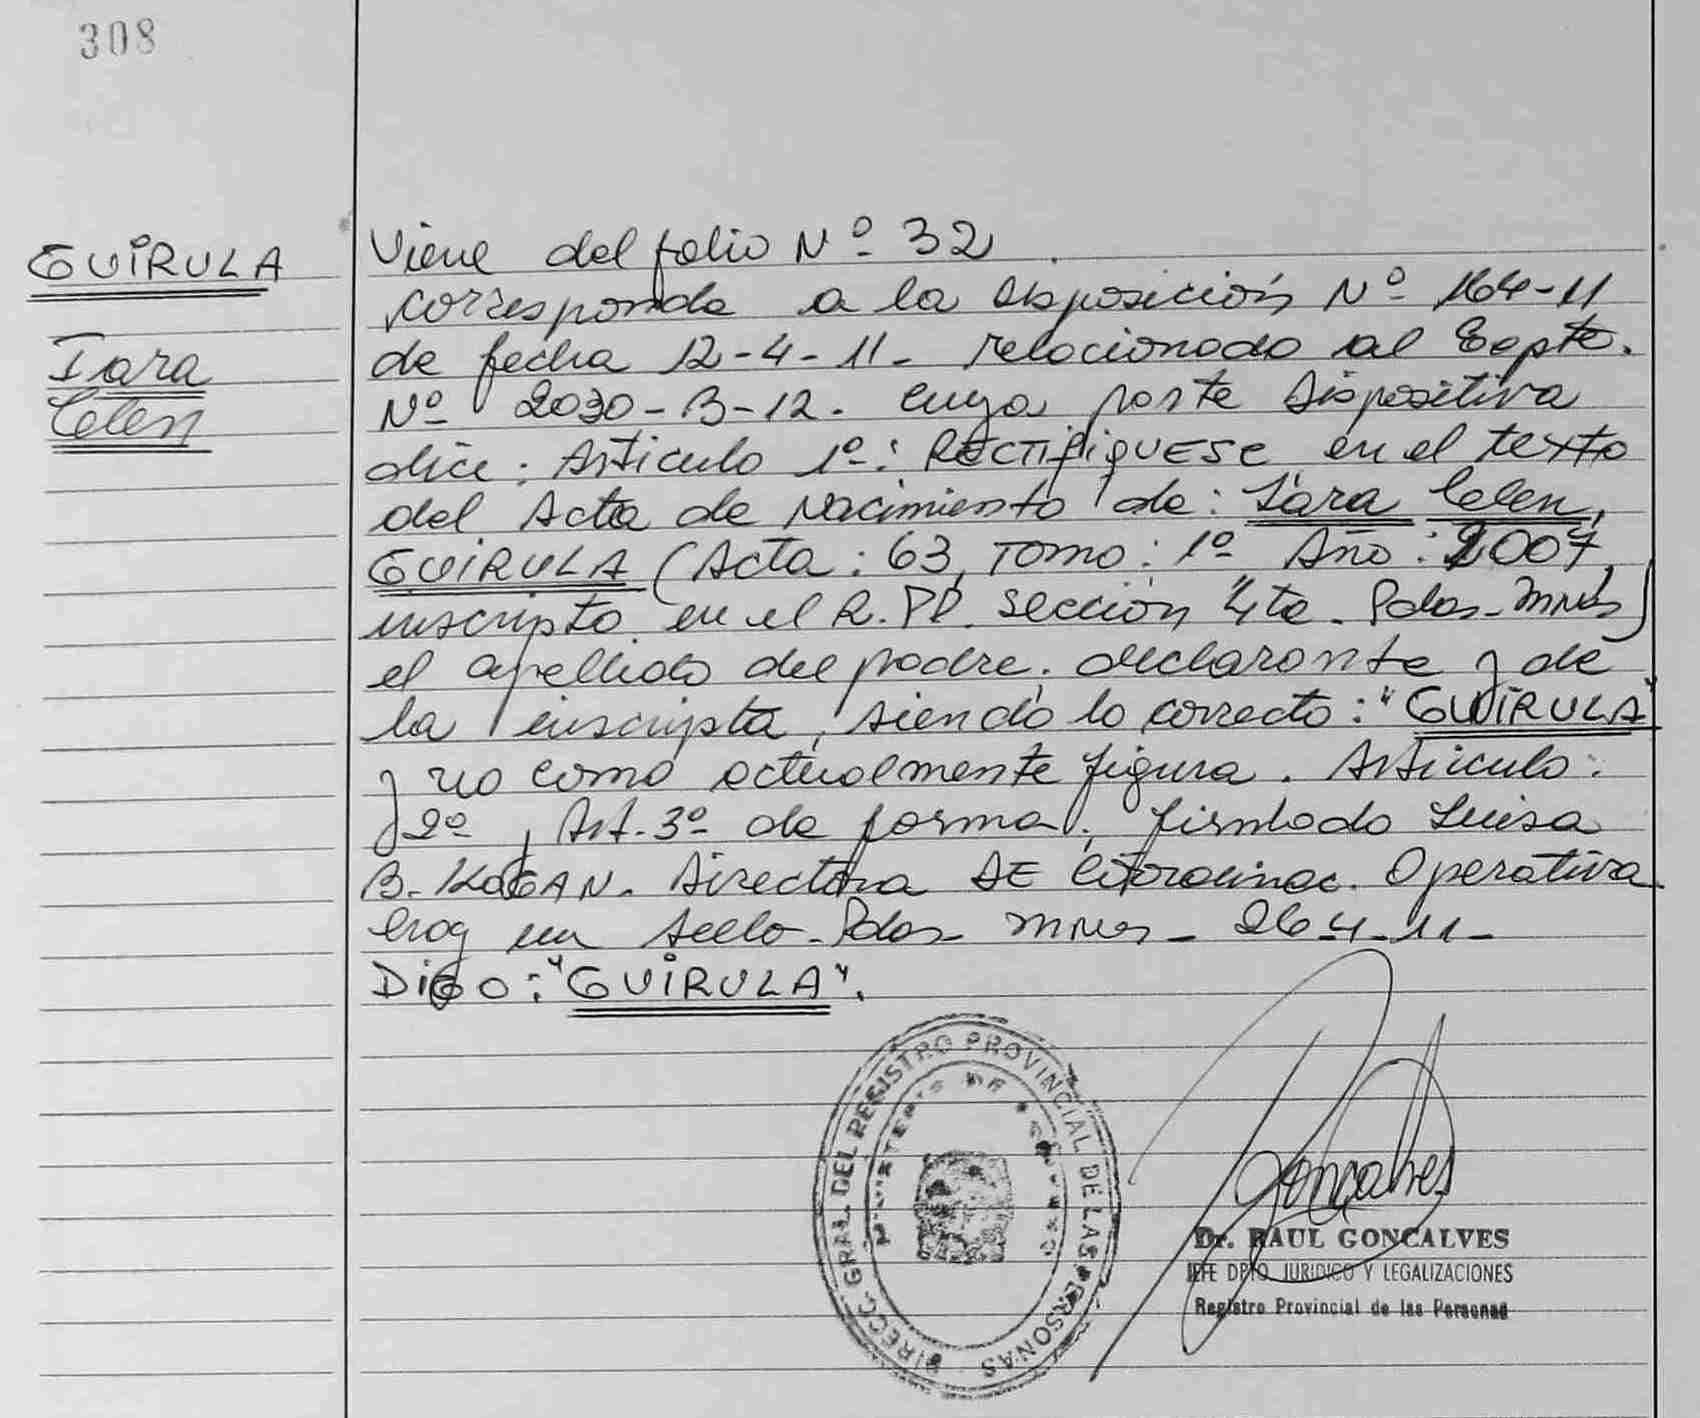 308
GUIRULA
Iara
Celen
Viene del folio Nº 32
corresponde a la disposición Nº 164-11
de fecha 12-4-11. relacionado al Expte.
Nº 2030-B-12. cuya parte dispositiva
dice: Articulo 1º: RECTIFIQUESE en el texto
del Acta de Nacimiento de: Iara Celen,
GUIRULA (Acta: 63, Tomo: 1º Año: 2007,
inscripto en el R.PP. Sección 4ta. Pdas-Mnes)
el apellido del padre, declarante y de
la inscripta, siendo lo correcto: "GUIRULA"
y no como actualmente figura. Articulo:
2º y Art. 3º de forma. firmado Luisa
B. KAGAN. Directora DE Coordinac. Operativa
Hay un sello. Pdas- Mnes- 26-4-11-
DIGO: "GUIRULA".
DIRECC. GRAL. DEL REGISTRO PROVINCIAL DE LAS PERSONAS
MINISTERIO DE GOBIERNO
Goncalves
Dr. RAUL GONCALVES
JEFE DPTO. JURIDICO Y LEGALIZACIONES
Registro Provincial de las Personas